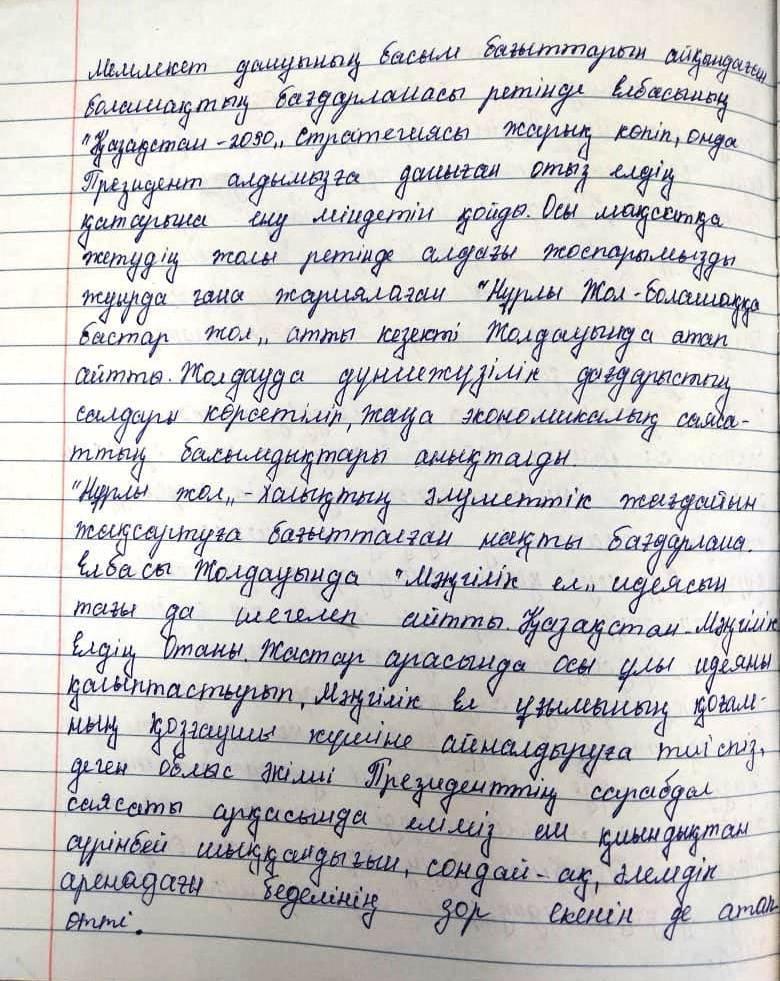 Мемлекет дамуының басым бағыттарын айқындаған
болашақтың бағдарламасы ретінде Елбасының
"Қазақстан -2050„ стратегиясы жарық көріп, онда
Президент алдымызға дамыған отыз елдің
қатарына ену міндетін қойды. Осы мақсатқа
жетудің жолы ретінде алдағы жоспарымызды
жуырда ғана жариялаған "Нұрлы Жол-болашаққа
бастар жол„ атты кезекті Жолдауында атап
айтты. Жолдауда дүниежүзілік дағдарыстың
салдары көрсетіліп, жаңа экономикалық саяса-
ттың басымдықтары анықталды.
"Нұрлы жол„ - халықтың әлуметтік жағдайын
жақсартуға бағытталған нақты бағдарлама.
Елбасы Жолдауында "Мәңгілік ел„ идеясын
тағы да шегелеп айтты. Қазақстан - Мәңгілік
Елдің Отаны. Жастар арасында осы ұлы идеяны
қалыптастырып, Мәңгілік Ел ұғымының қоғам-
ның қозғаушы күшіне айналдыруға тиіспіз,
деген облыс әкімі Президенттің сарабдал
саясаты арқасында еліміз ең қиындықтан
сүрінбей шыққандығын, сондай-ақ, әлемдік
аренадағы беделінің зор екенін де атап
өтті.